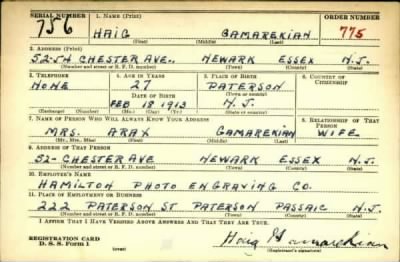 SERIAL NUMBER 1. NAME (Print) ORDER NUMBER
756 HAIG GAMAREKIAN 775
(First) (Middle) (Last)
2. ADDRESS (Print)
52-54 CHESTER AVE., NEWARK ESSEX N.J.
(Number and street or R. F. D. number) (Town) (County) (State)
3. TELEPHONE 4. AGE IN YEARS 5. PLACE OF BIRTH 6. COUNTRY OF CITIZENSHIP
NONE 27 PATERSON
DATE OF BIRTH
FEB 18 1913 N.J.
(Exchange) (Number) (Mo.) (Day) (Yr.) (State or country)
7. NAME OF PERSON WHO WILL ALWAYS KNOW YOUR ADDRESS 8. RELATIONSHIP OF THAT PERSON
MRS. ARAX GAMAREKIAN WIFE
(Mr., Mrs., Miss) (First) (Middle) (Last)
9. ADDRESS OF THAT PERSON
52- CHESTER AVE NEWARK ESSEX N.J.
(Number and street or R. F. D. number) (Town) (County) (State)
10. EMPLOYER'S NAME
HAMILTON PHOTO ENGRAVING CO.
11. PLACE OF EMPLOYMENT OR BUSINESS
222 PATERSON ST PATERSON PASSAIC N.J.
(Number and street or R. F. D. number) (Town) (County) (State)
I AFFIRM THAT I HAVE VERIFIED ABOVE ANSWERS AND THAT THEY ARE TRUE.
REGISTRATION CARD
D. S. S. Form 1
Haig Gamarekian
(Registrant's signature)